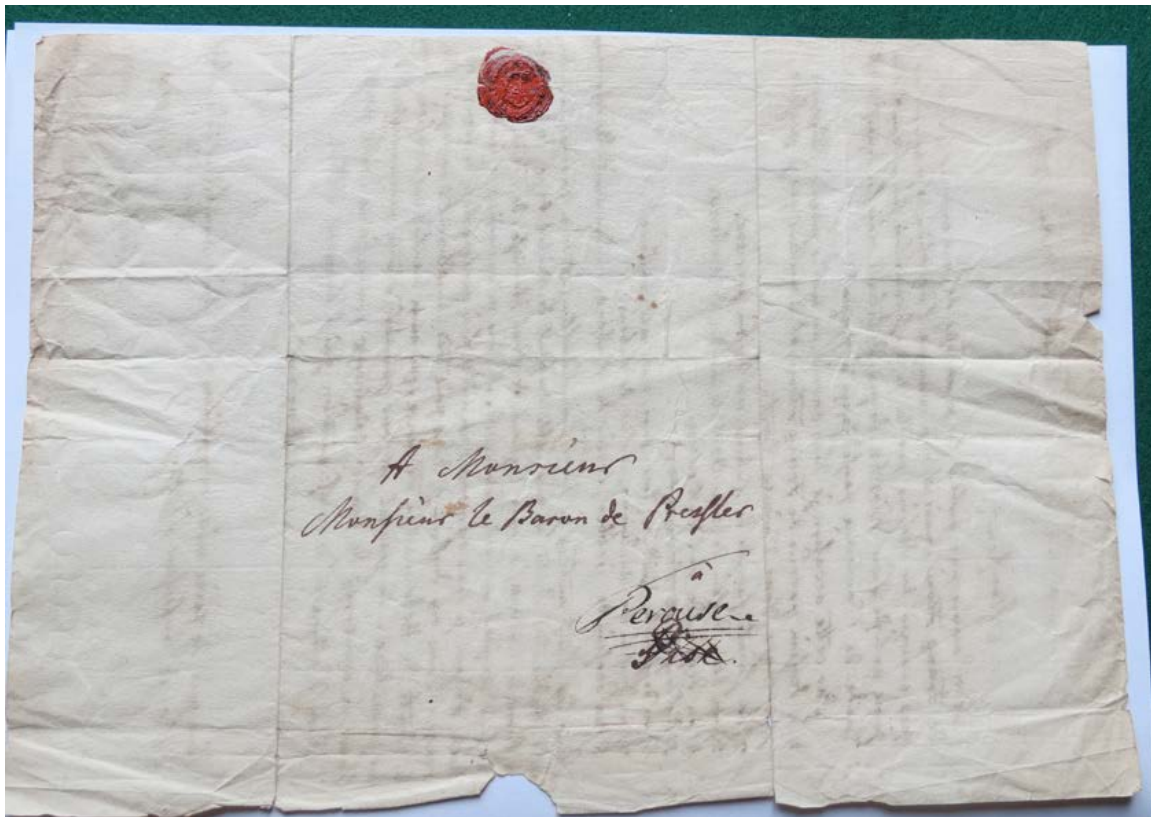 A Monsieur
Monsieur le Baron de Pressler
à
Perouse
Pise.